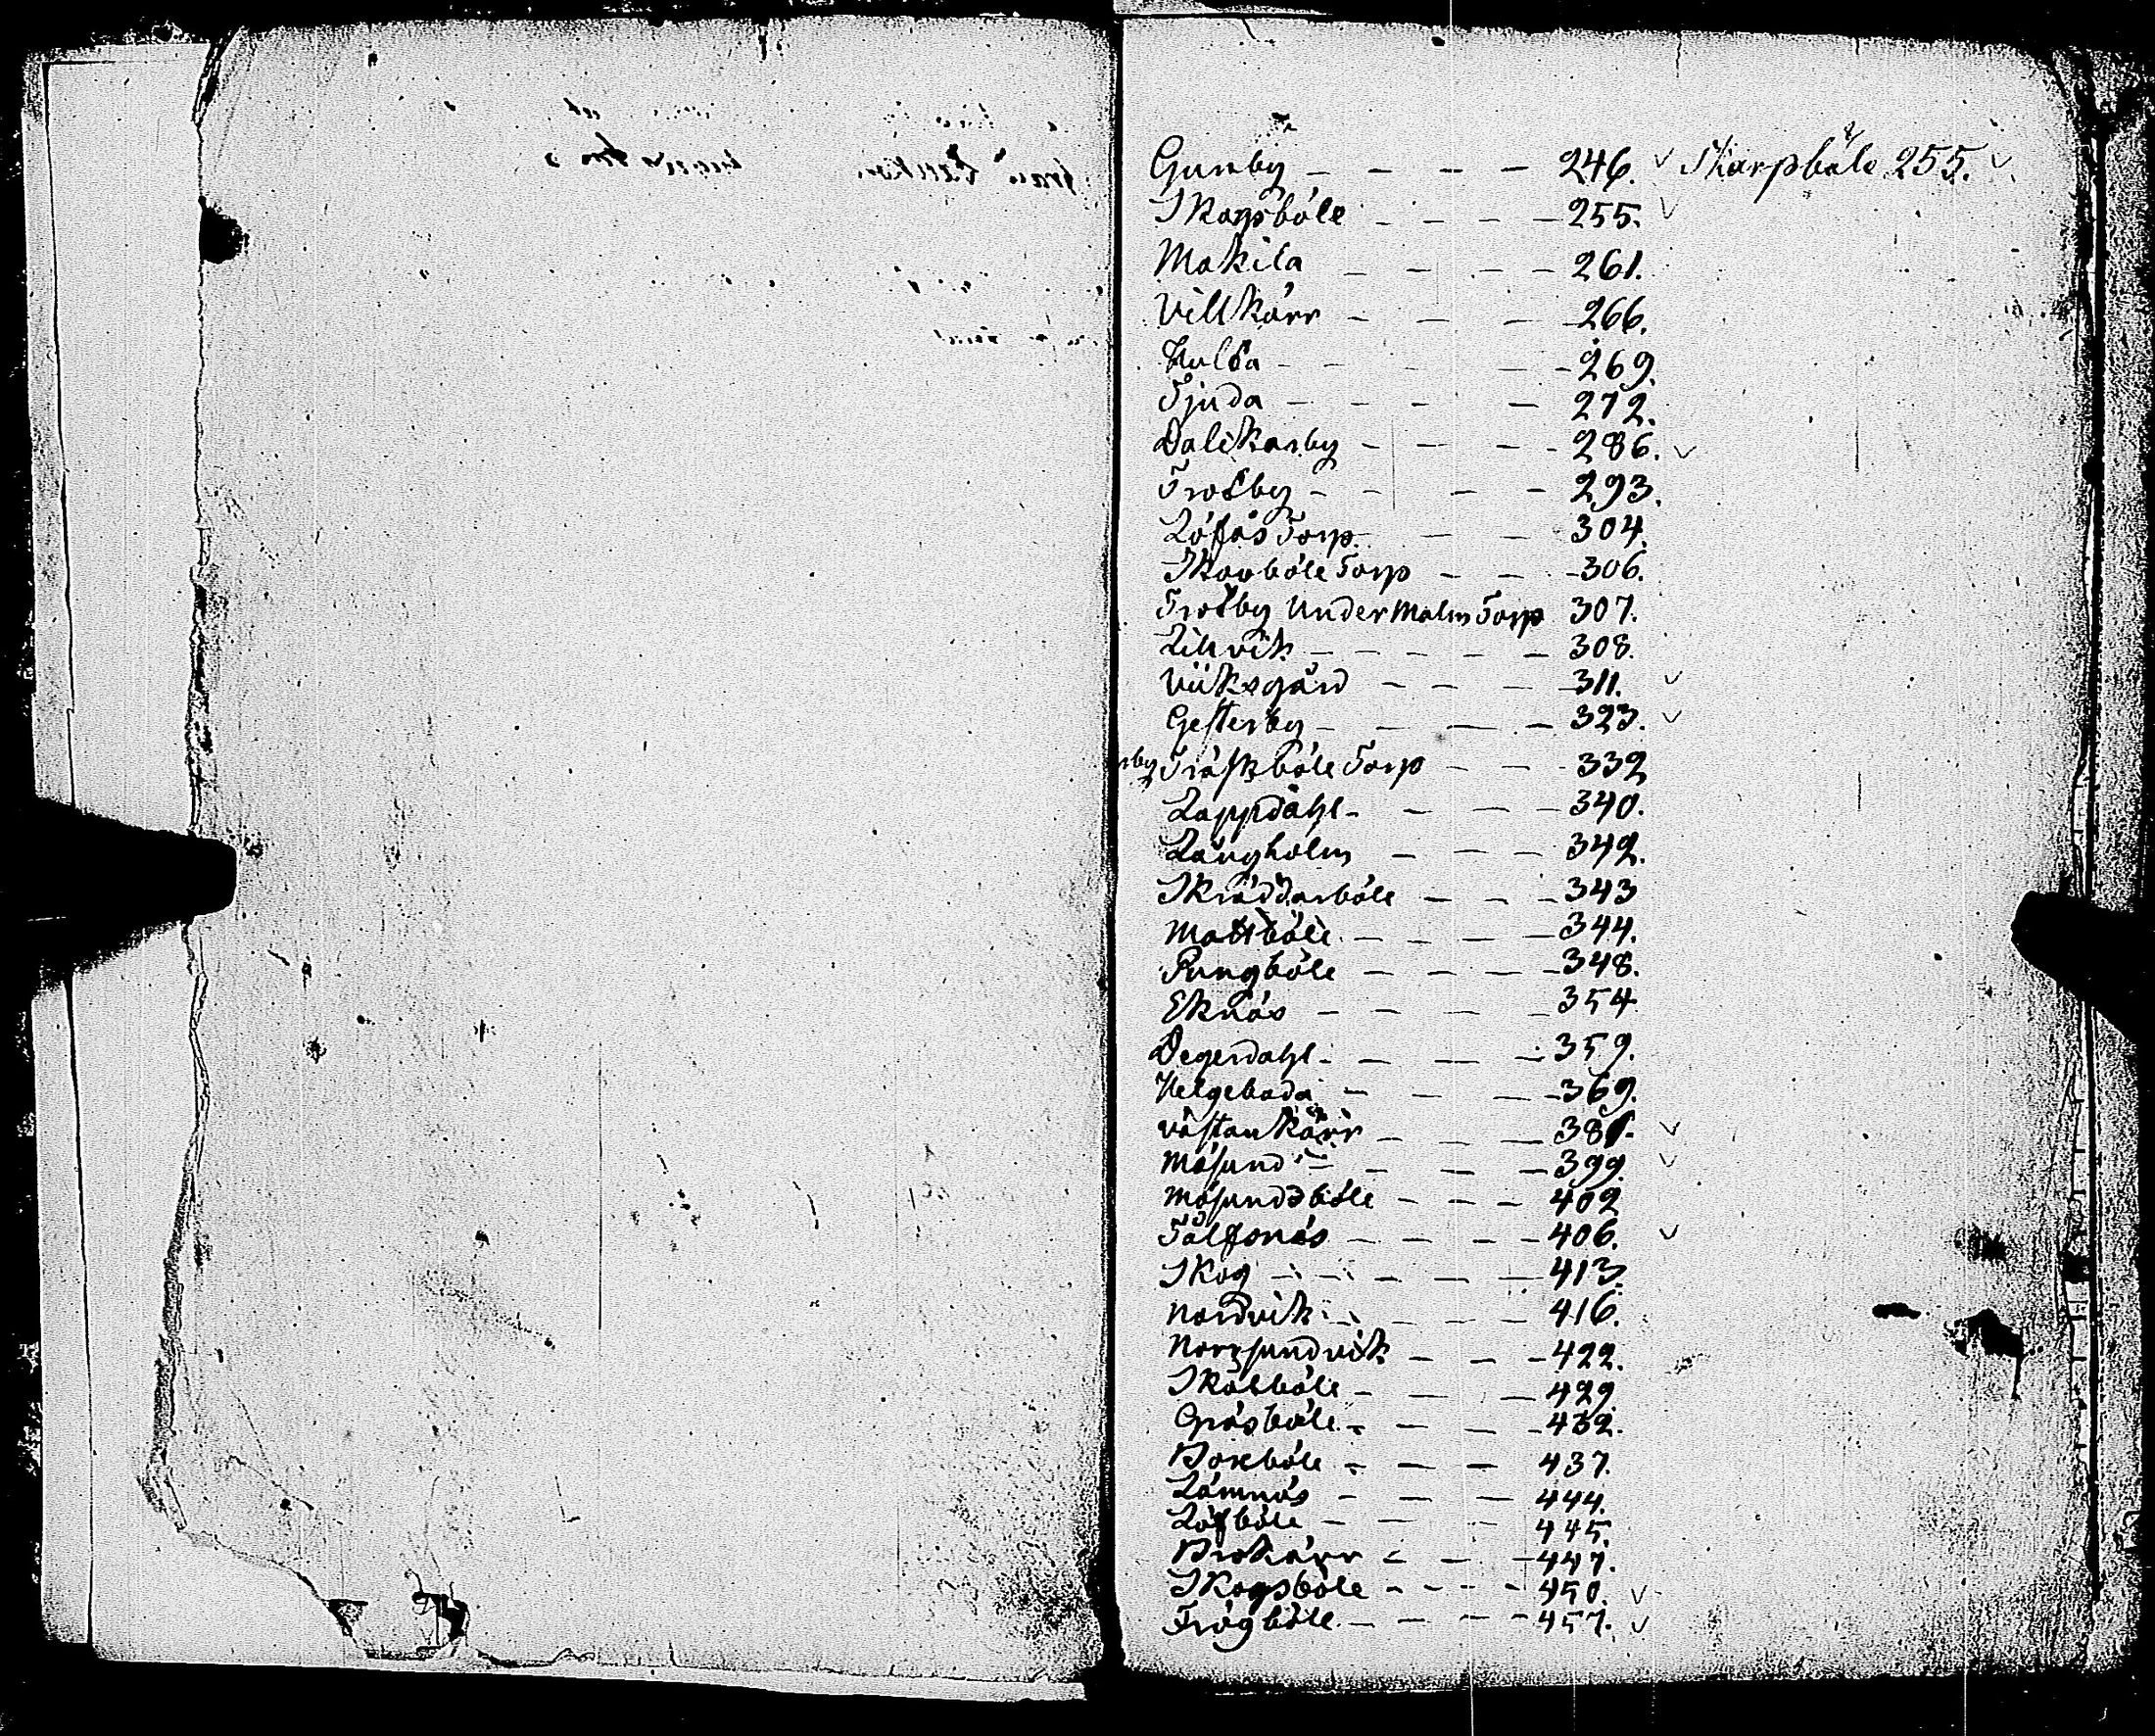 Gunby - - - - 246. ✓ Skarpböle 255. ✓
Skogsböle - - - 255. ✓
Makila - - - - 261.
Villkärr - - - 266.
Hulta - - - - 269.
Tjuda - - - - 272.
Dalkarby - - - 286. ✓
Trotby - - - - 293.
Löfås Torp - - 304.
Skogböle Torp - - - 306.
Trotby Under Malm Torp 307.
Lillvik - - - - - 308.
Viiksgård - - - 311. ✓
Gesterby - - - - 323. ✓
Träskböle Torp - - - 332
Lappdahl - - - - 340.
Långholm - - - 342.
Skräddarböle - - - 343
Mattböle - - - - 344.
Pungböle - - - - 348.
Eknäs - - - - - 354
Degerdahl - - - - 359.
Helgeboda - - - 369.
Västankärr - - - 381. ✓
Måsund - - - - 399. ✓
Måsundsböle - - - 402
Tälfsnäs - - - - 406. ✓
Skog - - - - - 413.
Nordvik - - - - 416.
Norrsundvik - - - 422.
Skålböle - - - 429.
Gräsböle - - - 432.
Boxböle - - - 437.
Lämnäs - - - 444.
Löfböle - - - 445.
Brokärr - - - 447.
Skogsböle - - - - 450. ✓
Trögböle - - - - 457. ✓